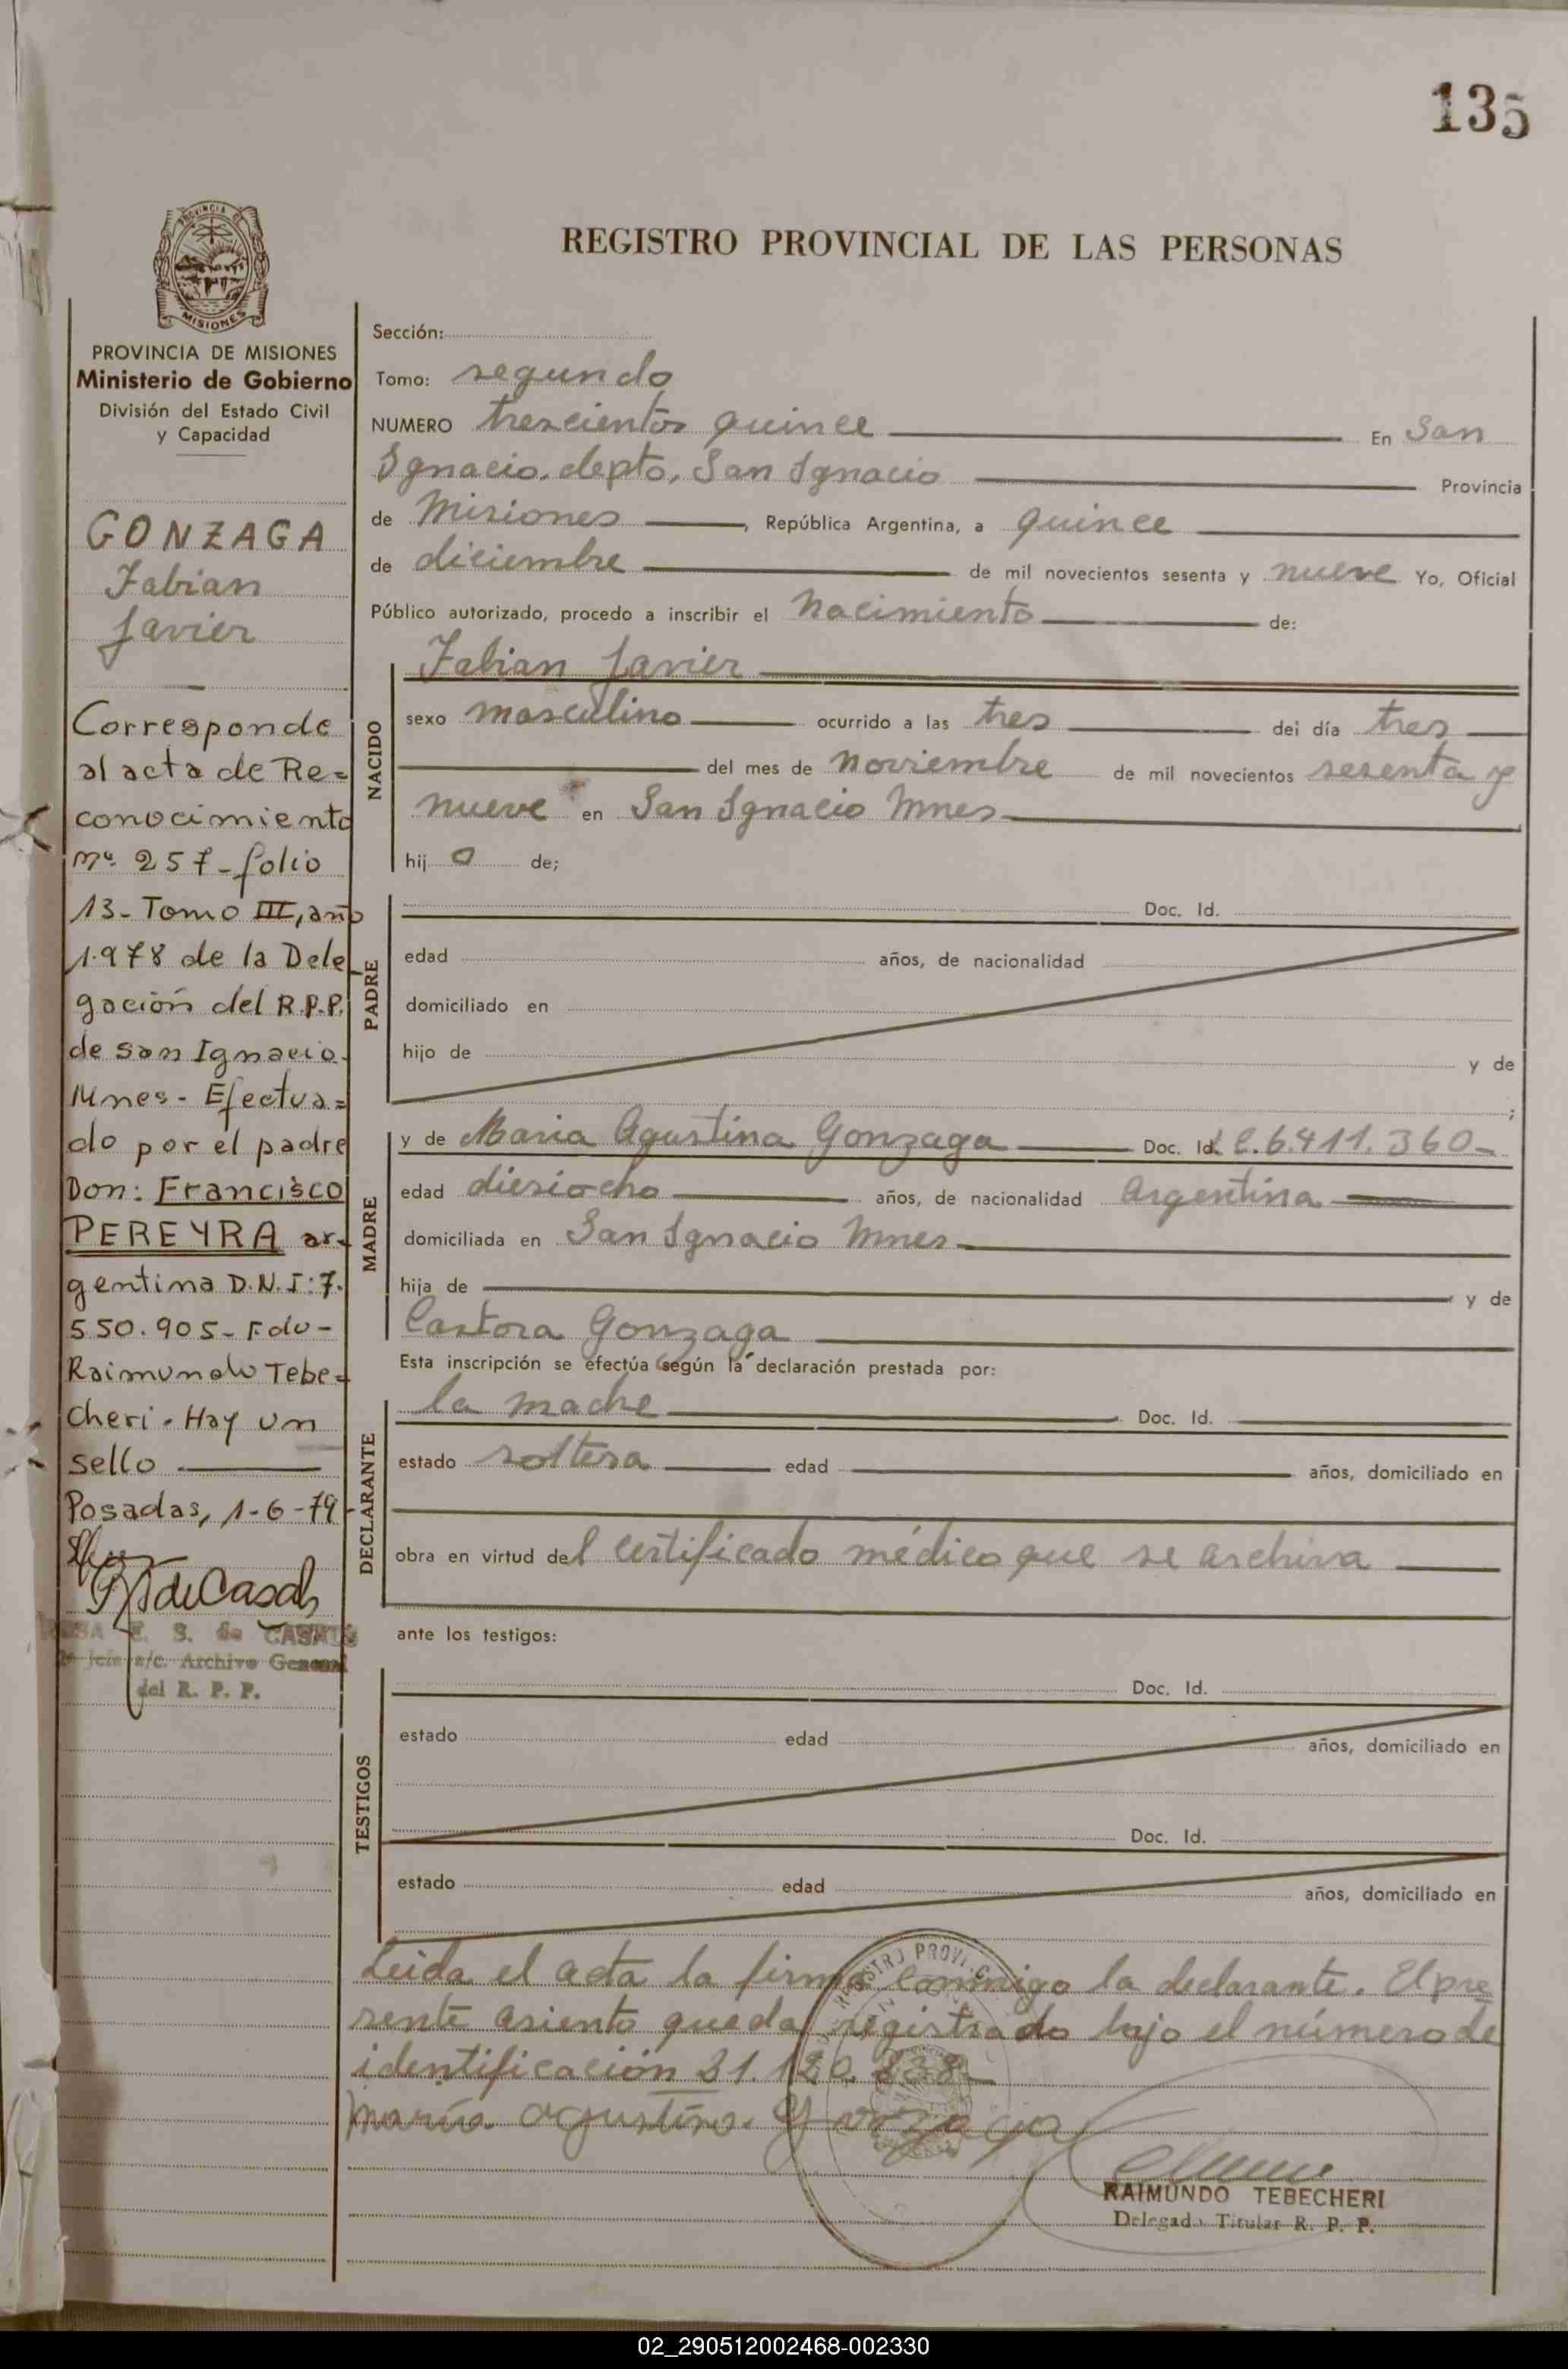 135
PROVINCIA DE
MISIONES
REGISTRO PROVINCIAL DE LAS PERSONAS
PROVINCIA DE MISIONES
Ministerio de Gobierno
División del Estado Civil
y Capacidad
GONZAGA
Fabian
Javier
Corresponde
al acta de Re=
conocimiento
nº 257-folio
13-Tomo III, año
1.978 de la Dele
gación del R.P.P.
de San Ignacio
Mnes- Efectua=
do por el padre
Don: Francisco
PEREYRA ar-
gentina D.N.I: 7.
550.905- Fdo-
Raimundo Tebe=
cheri. Hay un
sello
Posadas, 1-6-79
de Casals
E. S. de CASALS
a/c. Archivo General
del R. P. P.
Sección:
Tomo: segundo
NUMERO trescientos quince En San
Ignacio. depto. San Ignacio Provincia
de Misiones, República Argentina, a quince
de diciembre de mil novecientos sesenta y nueve Yo, Oficial
Público autorizado, procedo a inscribir el Nacimiento de:
NACIDO
Fabian Javier
sexo masculino ocurrido a las tres del día tres
del mes de noviembre de mil novecientos sesenta y
nueve en San Ignacio Mnes
hij o de;
PADRE
Doc. Id.
edad años, de nacionalidad
domiciliado en
hijo de y de
;
MADRE
y de Maria Agustina Gonzaga Doc. Id. L.C.6.411.360-
edad diesiocho años, de nacionalidad Argentina
domiciliada en San Ignacio Mnes
hija de y de
Castora Gonzaga
Esta inscripción se efectúa según la declaración prestada por:
DECLARANTE
la madre Doc. Id.
estado soltera edad años, domiciliado en
obra en virtud del certificado médico que se archiva
ante los testigos:
TESTIGOS
Doc. Id.
estado edad años, domiciliado en
Doc. Id.
estado edad años, domiciliado en
Leida el acta la firma conmigo la declarante. El pre
sente asiento queda registrado bajo el número de
identificación 21.120.838-
maría agustina Gonzaga
RAIMUNDO TEBECHERI
Delegado Titular R. P. P.
02_290512002468-002330